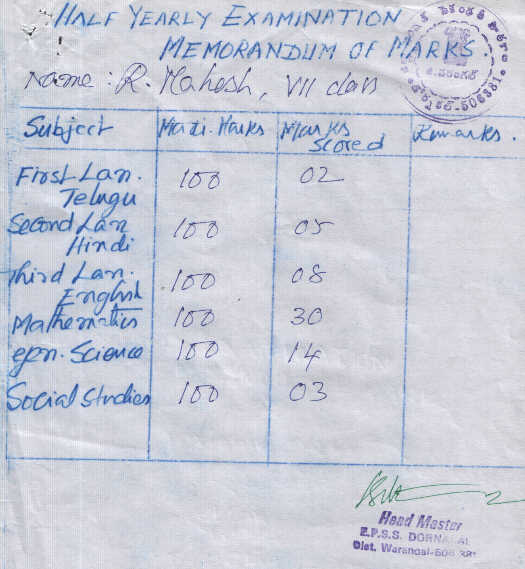 HALF YEARLY EXAMINATION
MEMORANDUM OF MARKS
Name: R. Mahesh, VII class
Subject Maxi. Marks Marks Scored Remarks.
First Lan. Telugu 100 02
Second Lan Hindi 100 05
Third Lan. English 100 08
Mathematics 100 30
Gen. Science 100 14
Social Studies 100 03
506381
Head Master
E.P.S.S. DORNAKAL
Dist. Warangal-506 381